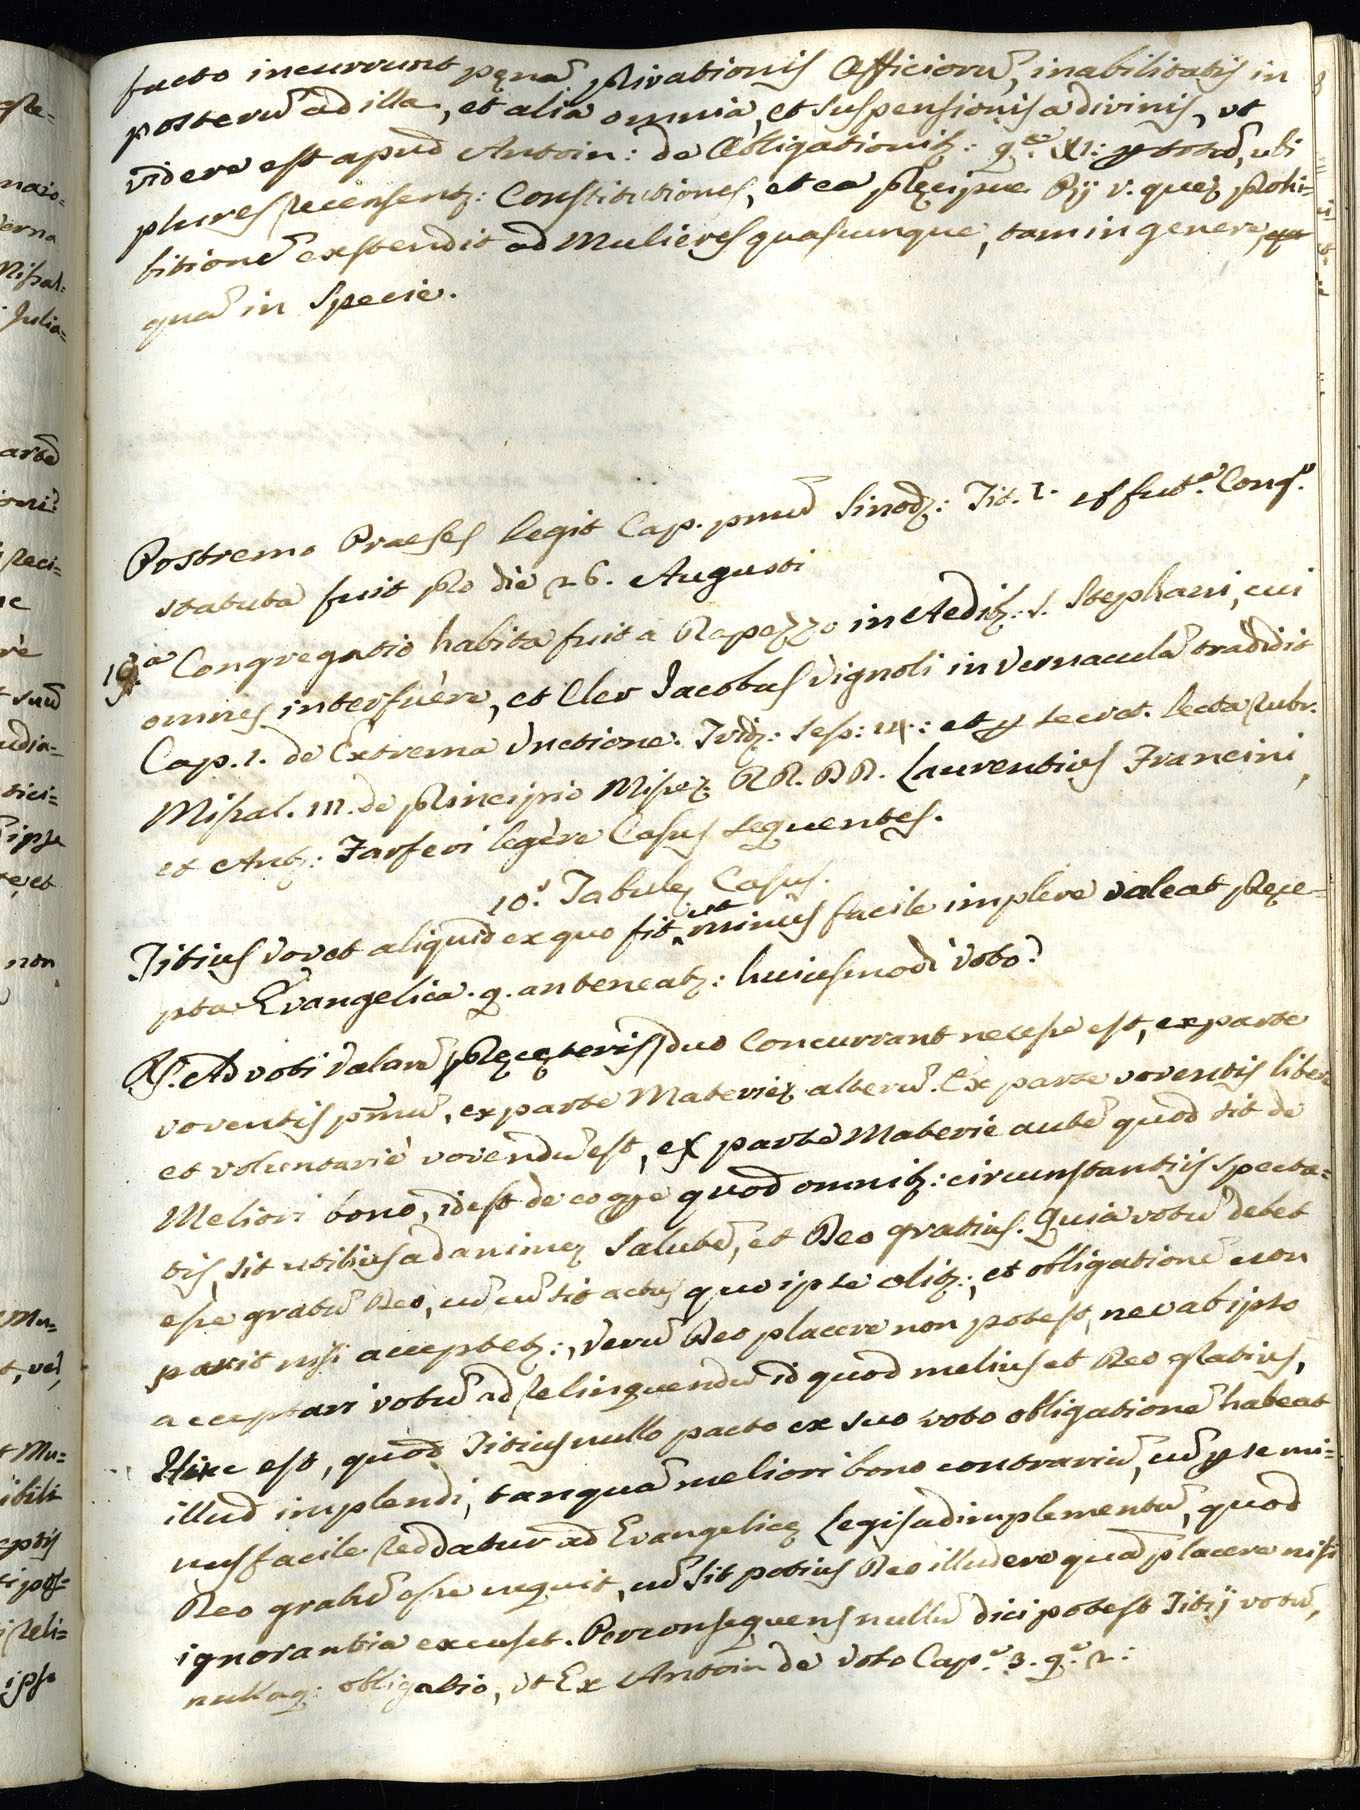 facto incurrunt pęnã privationis Officiorũ, inabilitatis in
posterũ ad illa, et alia omnia, et suspensionis a divinis, ut
videre est apud Antoin: de Obligationib: q.e XI: p totũ, ubi
plures recensent: Constitutiones, et ea pręcipue Pij V. quę prohi=
bitionẽ exstendit ad Mulieres quascunque, tam in genere,
quã in Specie.
Postremo Praeses legit Cap. pmũ Sinod: Tit. I. et fut.a Cong.o
statuta fuit pro die 26. Augusti
Congregatio habita fuit a Rapezzo in Aedib: S. Stephani, cui
omnes interfuère, et Cler Jacobus Vignoli in vernaculã tradidit
Cap. 1. de Extrema Unctione. Trid: Sess: 14: et p secret. lecta rubr.
Missal. III. de principio Missę RR. DD. Laurentius Francini,
et Ant: Tarferi legère Casus sequentes.
10.s Tabulę Casus.
Titius vovet aliquid ex quo fit ut minus facile implere valeat pręce=
pta Evangelica. q. an teneat: huiusmodi Voto?
Rs. Ad voti valorẽ pręcęteris duo concurrant necesse est, ex parte
voventis pmũ, ex parte Materiei alterũ. Ex parte voventis libere
et voluntariè vovendũ est, ex parte Materie autẽ quod sit de
Meliori bono, idest de eo qe quod omnib: circumstantiis specta=
tis, sit utilius ad animę salutẽ, et Deo gratius. Quia votũ debet
esse gratũ Deo, cũ cũ sit actus quo ipse colit:, et obligationẽ non
pariit nisi acceptet:, verũ Deo placere non potest, nec ab ipso
acceptari votũ ad relinquendũ id quod melius et Deo gratius,
Hinc est, quod Titius nullo pacto ex suo voto obligationẽ habeat
illud implendi, tanquã meliori bono contrariũ, cũ p se mi=
nus facile reddatur ad Evangelicę Legis adimplementũ, quod
Deo gratũ esse nequit, cũ sit potius Deo illudere quã placere nisi
ignorantia excuset. Per consequens nullũ dici potest Titij votũ,
nullaq: obligatio, ut Ex Antoin de voto Cap.e 3. q.e 2: